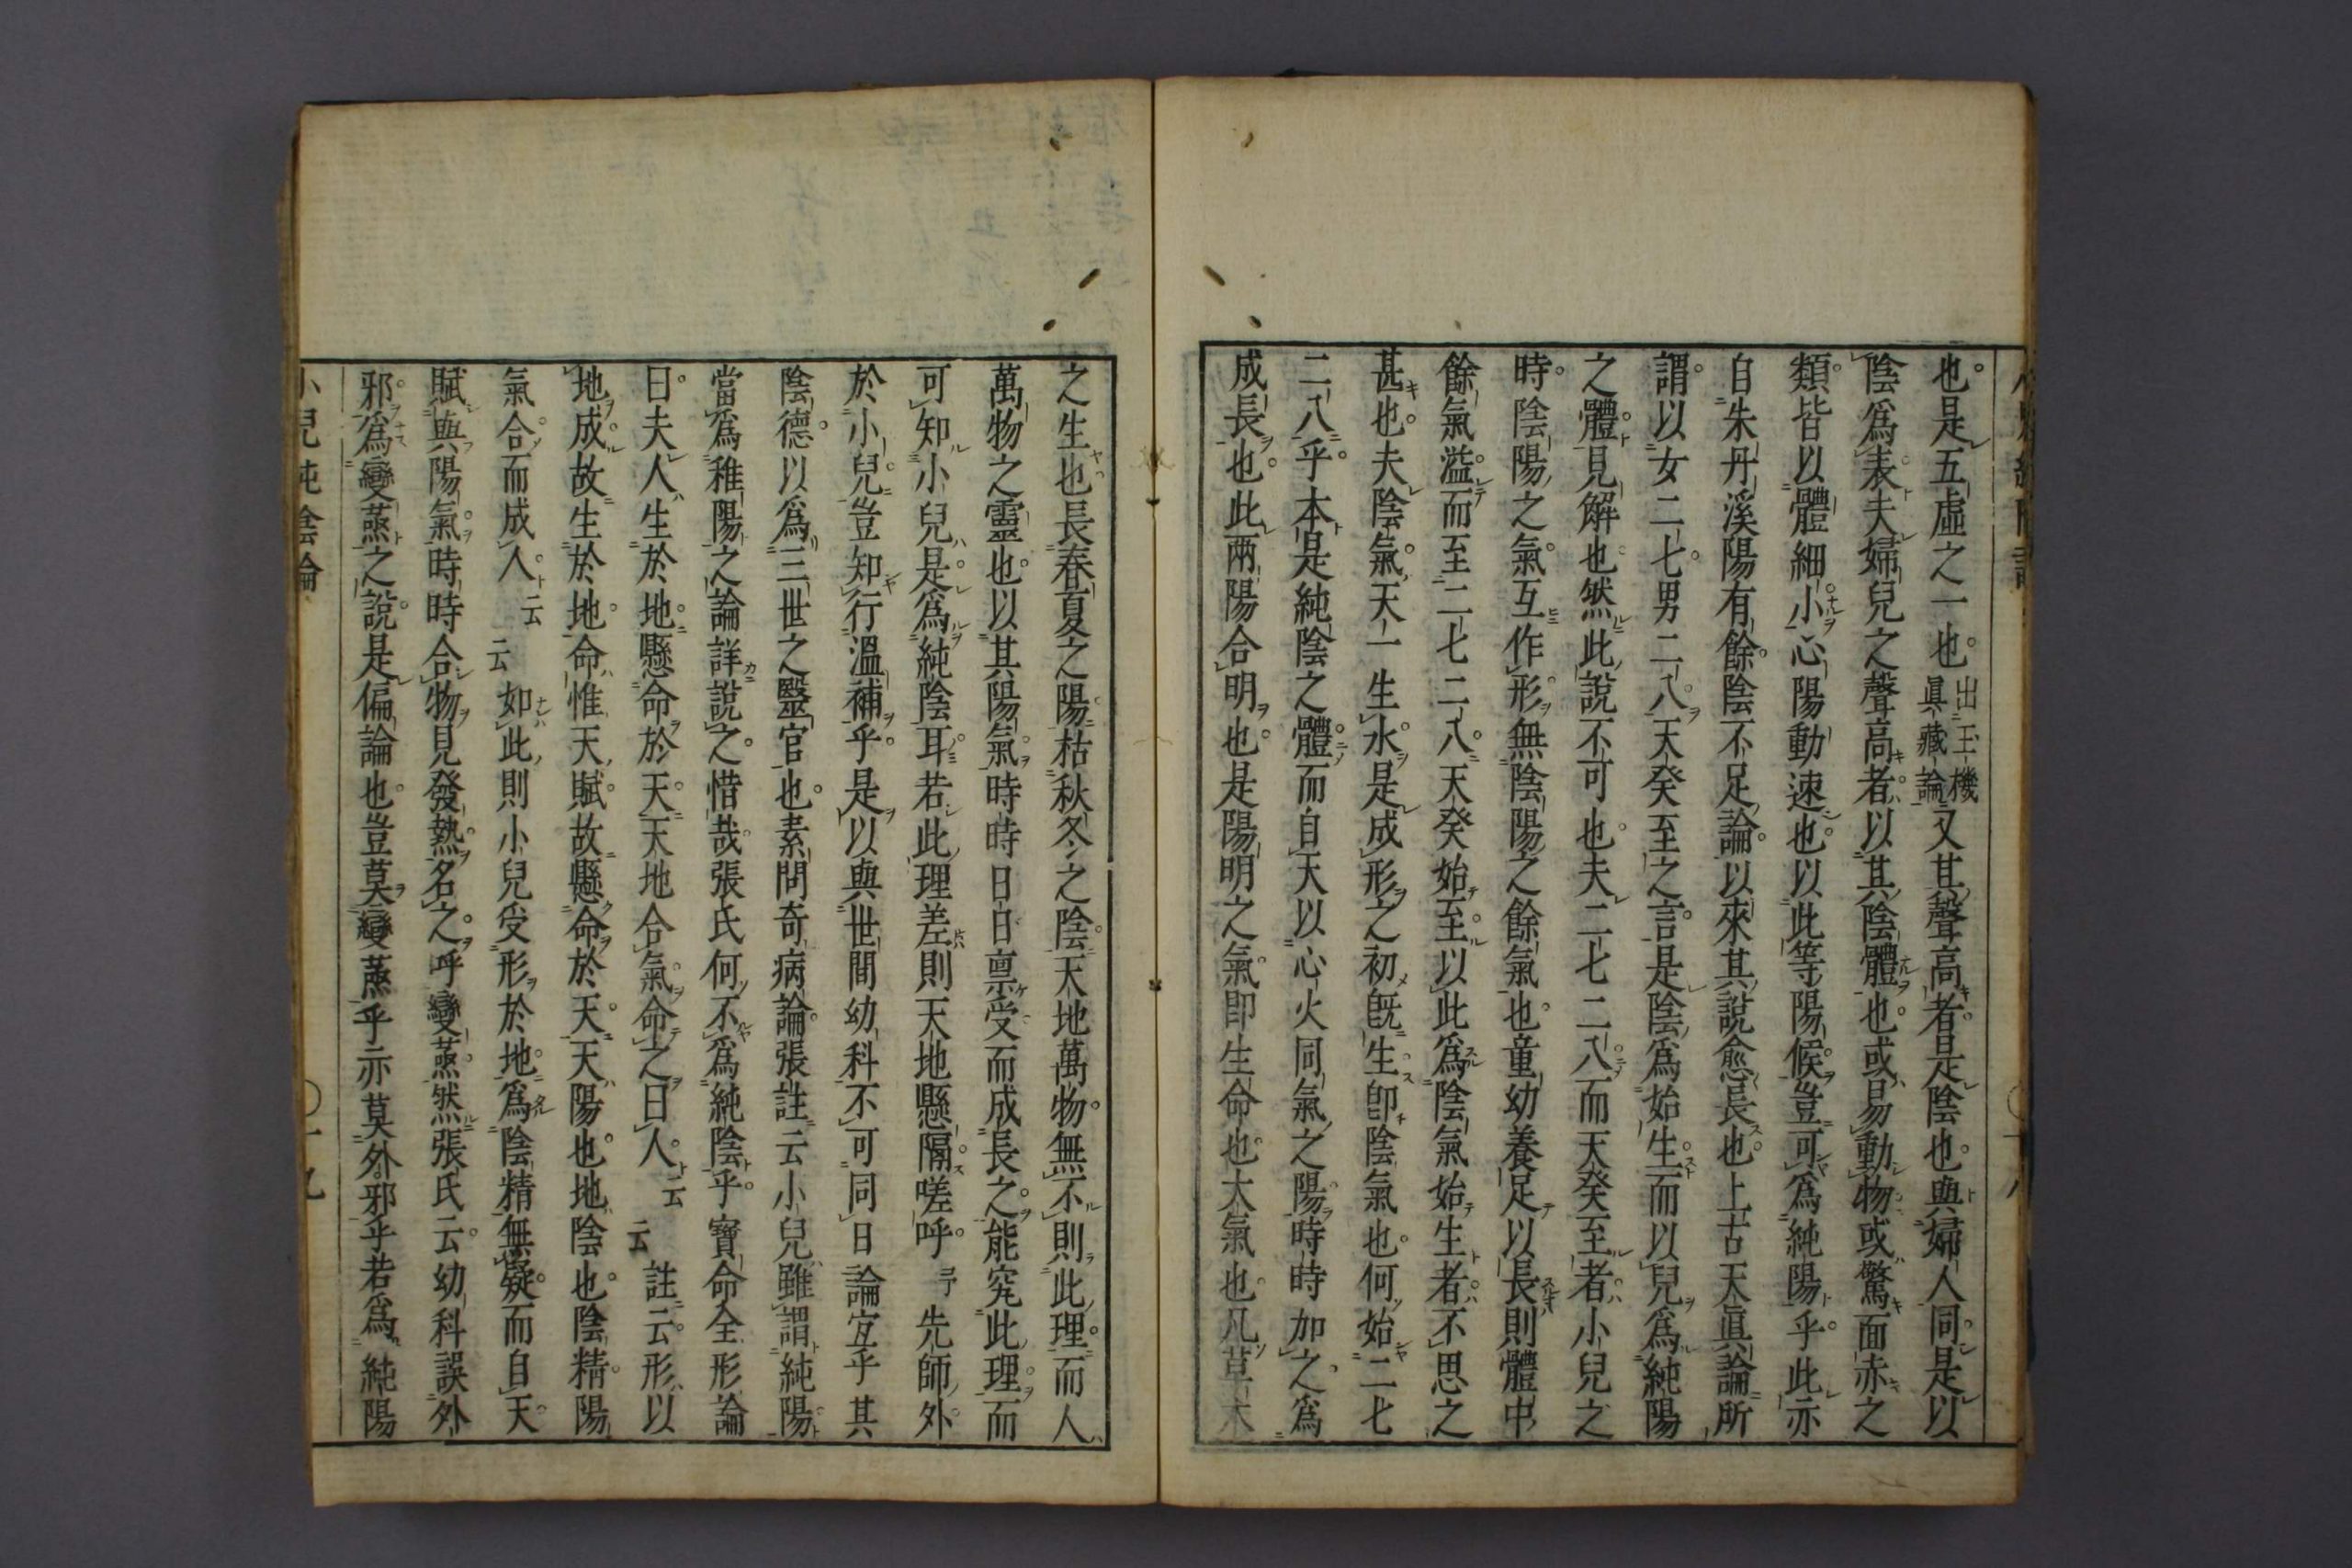 也是五虛之一也出玉機眞藏論又其聲高者是陰也與婦人同是以
陰爲表夫婦兒之聲高者以其陰體也或易動物或驚面赤之
類皆以體細小心陽動速也以此等陽候豈可爲純陽乎此亦
自朱丹溪陽有餘陰不足論以來其說愈長也上古天眞論所
謂以女二七男二八天癸至之言是陰爲始生而以兒爲純陽
之體見解也然此說不可也夫二七二八而天癸至者小兒之
時陰陽之氣互作形無陰陽之餘氣也童幼養足以長則體中
餘氣溢而至二七二八天癸始至以此爲陰氣始生者不思之
甚也夫陰氣天一生水是成形之初旣生卽陰氣也何始二七
二八乎本是純陰之體而自天以心火同氣之陽時時加之爲
成長也此兩陽合明也是陽明之氣卽生命也大氣也凡草木
之生也長春夏之陽枯秋冬之陰天地萬物無不則此理而人
萬物之靈也以其陽氣時時日日禀受而成長之能究此理而
可知小兒是爲純陰耳若此理差則天地懸隔嗟呼予先師外
於小兒豈知行溫補乎是以與世間幼科不可同日論宜乎其
陰德以爲三世之醫官也素問奇病論張註云小兒雖謂純陽
當爲稚陽之論詳說之惜哉張氏何不爲純陰乎寶命全形論
曰夫人生於地懸命於天天地合氣命之曰人云云註云形以
地成故生於地命惟天賦故懸命於天天陽也地陰也陰精陽
氣合而成人云云如此則小兒受形於地爲陰精無疑而自天
賦與陽氣時時合物見發熱名之呼變蒸然張氏云幼科誤外
邪爲變蒸之說是偏論也豈莫變蒸乎亦莫外邪乎若爲純陽
小兒純陰論